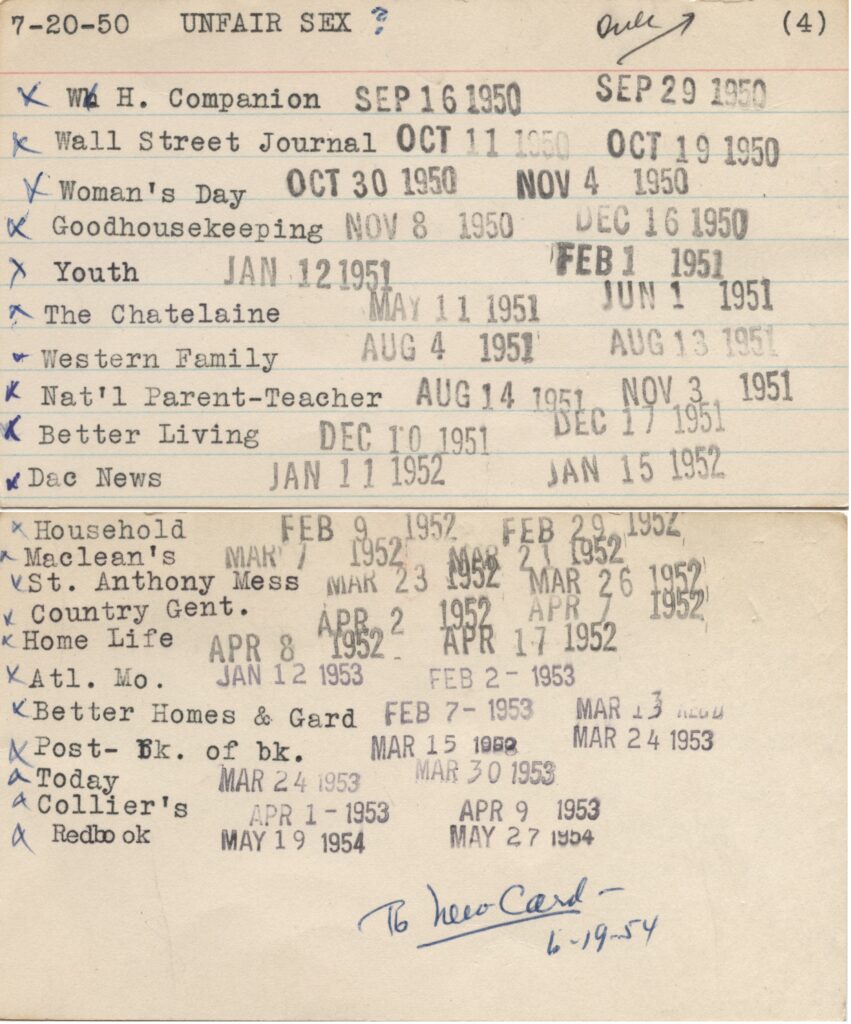 7-20-50 UNFAIR SEX ? (4)
W H. Companion SEP 16 1950 SEP 29 1950
Wall Street Journal OCT 11 1950 OCT 19 1950
Woman's Day OCT 30 1950 NOV 4 1950
Goodhousekeeping NOV 8 1950 DEC 16 1950
Youth JAN 12 1951 FEB 1 1951
The Chatelaine MAY 11 1951 JUN 1 1951
Western Family AUG 4 1951 AUG 13 1951
Nat'l Parent-Teacher AUG 14 1951 NOV 3 1951
Better Living DEC 10 1951 DEC 17 1951
Dac News JAN 11 1952 JAN 15 1952
Household FEB 9 1952 FEB 29 1952
Maclean's MAR 7 1952 MAR 21 1952
St. Anthony Mess MAR 23 1952 MAR 26 1952
Country Gent. APR 2 1952 APR 7 1952
Home Life APR 8 1952 APR 17 1952
Atl. Mo. JAN 12 1953 FEB 2- 1953
Better Homes & Gard FEB 7- 1953 MAR 13 REC'D
Post- Bk. of bk. MAR 15 MAR 24 1953
Today MAR 24 1953 MAR 30 1953
Collier's APR 1- 1953 APR 9 1953
Redbook MAY 19 1954 MAY 27 1954
To New Card -
6-19-54